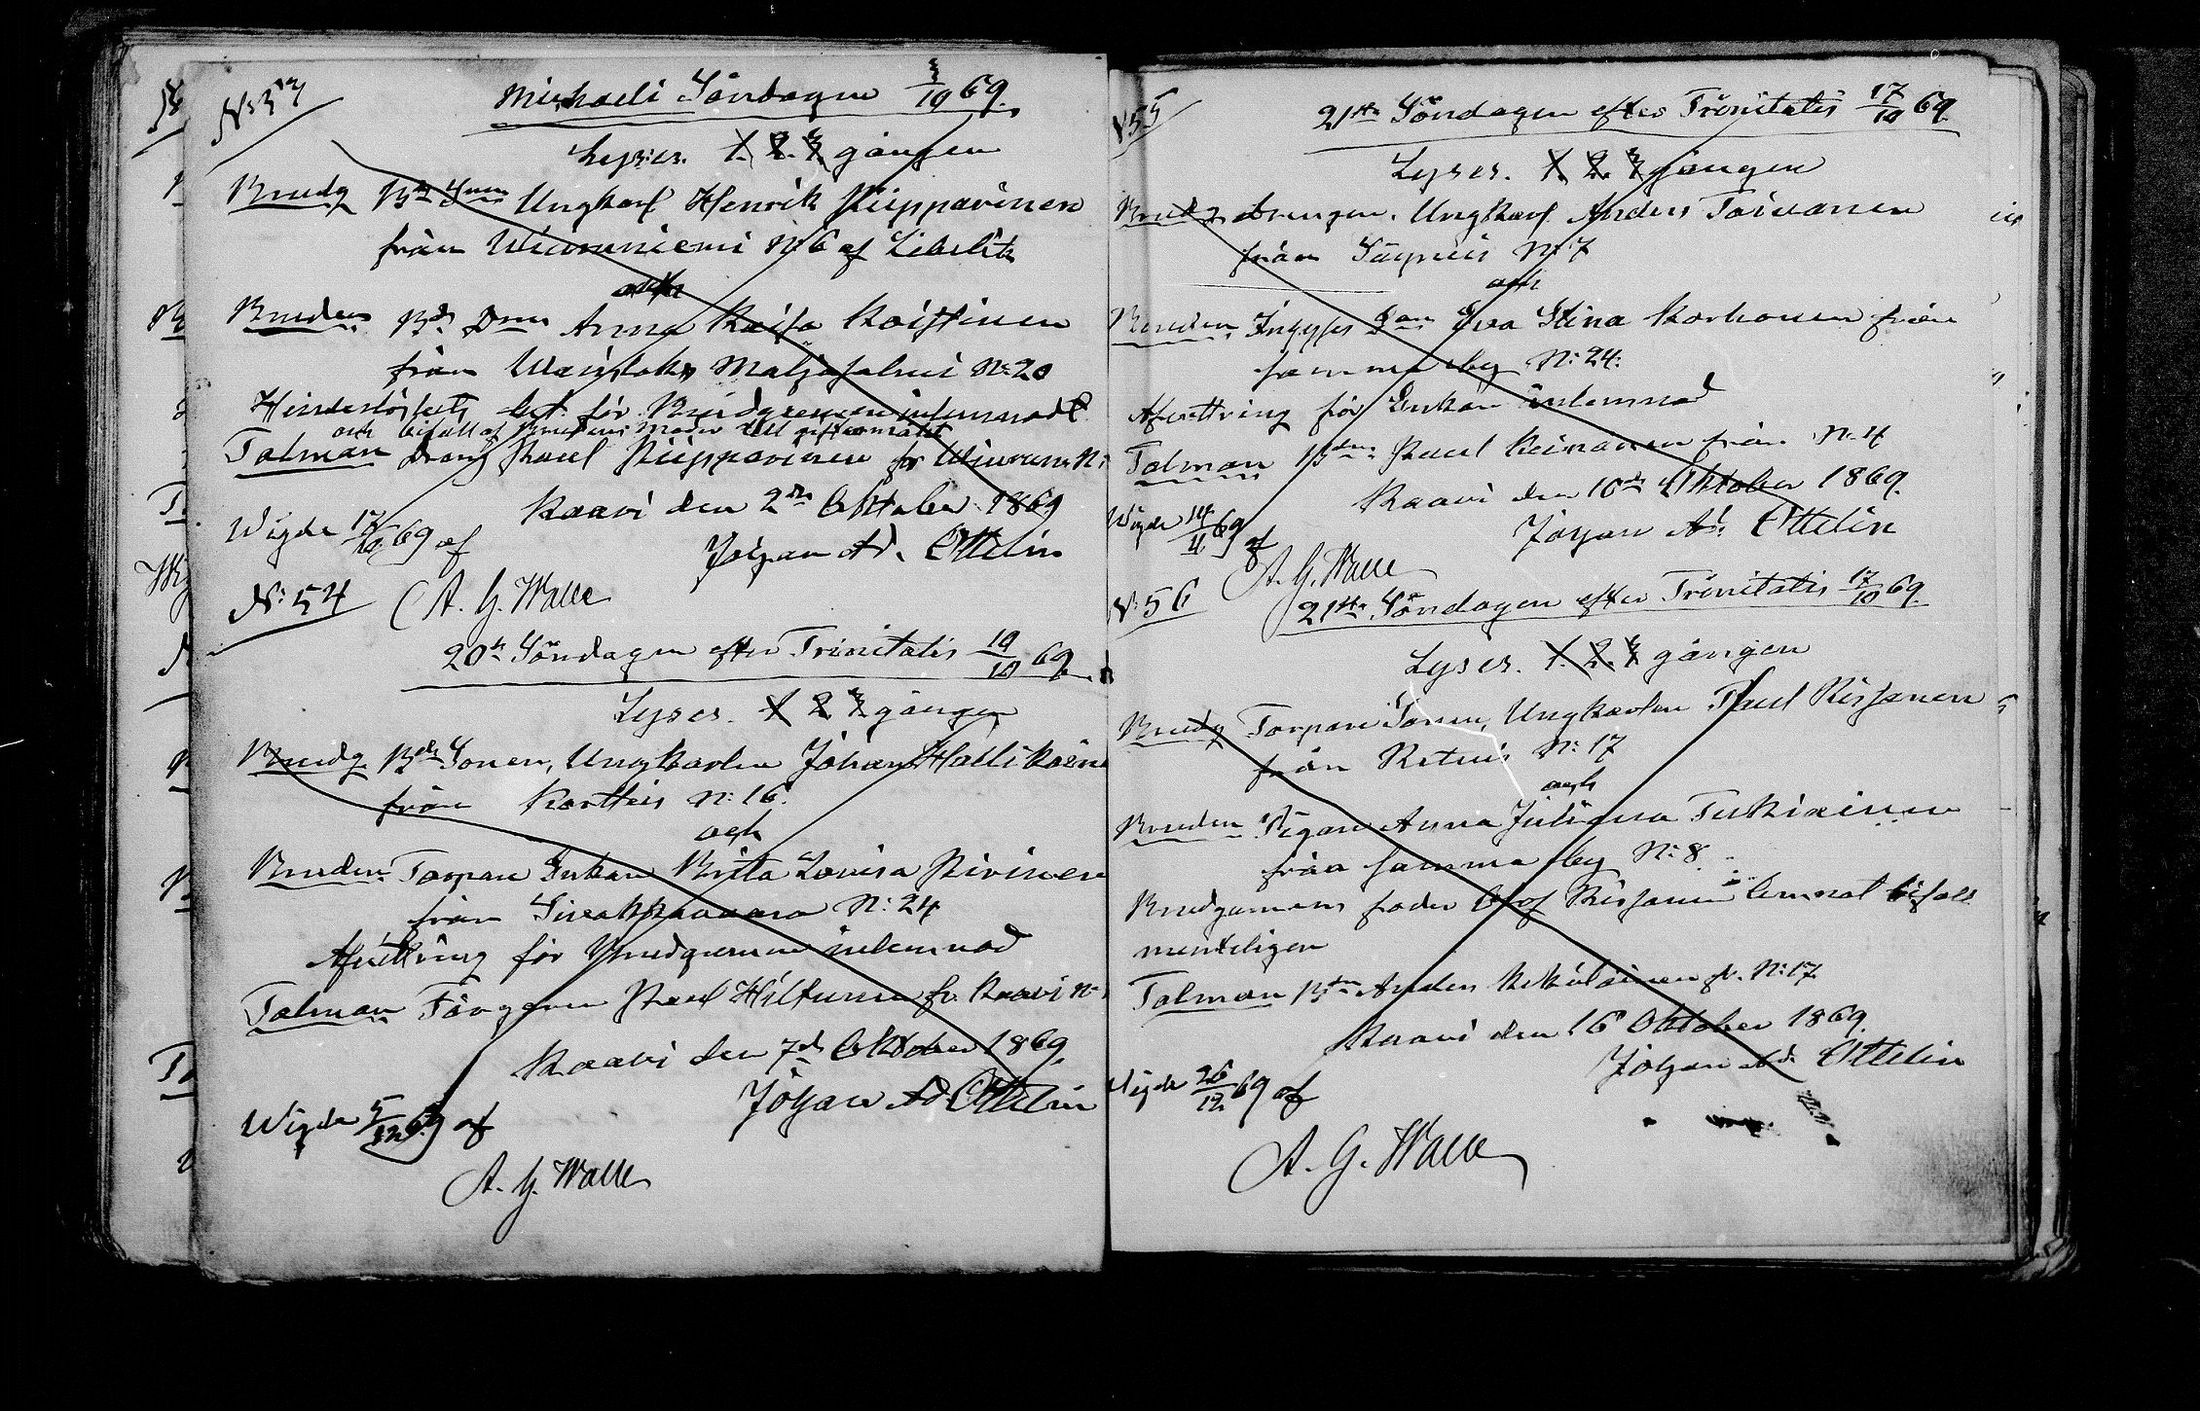 N:53
Michaeli Söndagen 3/10 69.
Lyses. 1. 2. 3 gången
Brudg. Bd Sonen Ungkarl Henrik Piipparinen
från Wiurunniemi N:6 af Libelits
och
Bruden Bds Dren Anna Kaisa Koistinen
från Maljasalmi N:20
Hinderlöshets bet. för Brudgummen inlemnad
och bifall af Brudens Moder till giftermålet
Talman Dräng Paul Piipparinen fr
Kaavi den 2dra Oktober 1869
Johan Ad. Ottelin
Wigde 17/10 69 af
A. G. Walle
N:54
20de Söndagen efter Trinitatis 10/10 69.
Lyses. 1 2 3 gången
Brudg. Bde Sonen, Ungkarlen Johan Hallikain
från Kortteis N:16.
och
Bruden Torpare Enkan Brita Lovisa Pirinen
från Sivakkavaara N:24
Afvittring för Brudgummen inlemnad
Talman Färgaren Paul Hiltunen fr. Kaavi N
Kaavi den 7de Oktober 1869.
Johan Ad. Ottelin
Wigde 5/12 69 af
A. G. Walle
N55
21sta Söndagen efter Trinitatis 17/10 69.
Lyses. 1. 2. 3 gången
Brudg. Drengen, Ungkarl Anders Toivanen
från Säyneis N:7
och
Bruden Enkan Eva Stina Korhonen från
samma by N:24.
Afvittring för Enkan inlemnad
Talman Bden Paul Keinänen från N:4
Kaavi den 10de Oktober 1869.
Johan Ad. Ottelin
Wigde 14/11 69 af
A. G. Walle
N:56
21sta Söndagen efter Trinitatis 17/10 69.
Lyses. 1. 2. 3 gången
Brudg Torpare Sonen, Ungkarlen Paul Rissanen
från Retuis N:17
och
Bruden Pigan Anna Juliana Tukiainen
från samma by N:8
Brudgumens fader Olof Rissanen lemnat bifall
munteligen
Talman Bden Anders Kekäläinen fr. N:17
Kaavi den 16 Oktober 1869.
Johan Ad. Ottelin
Wigde 26/12 69 af
A. G. Walle